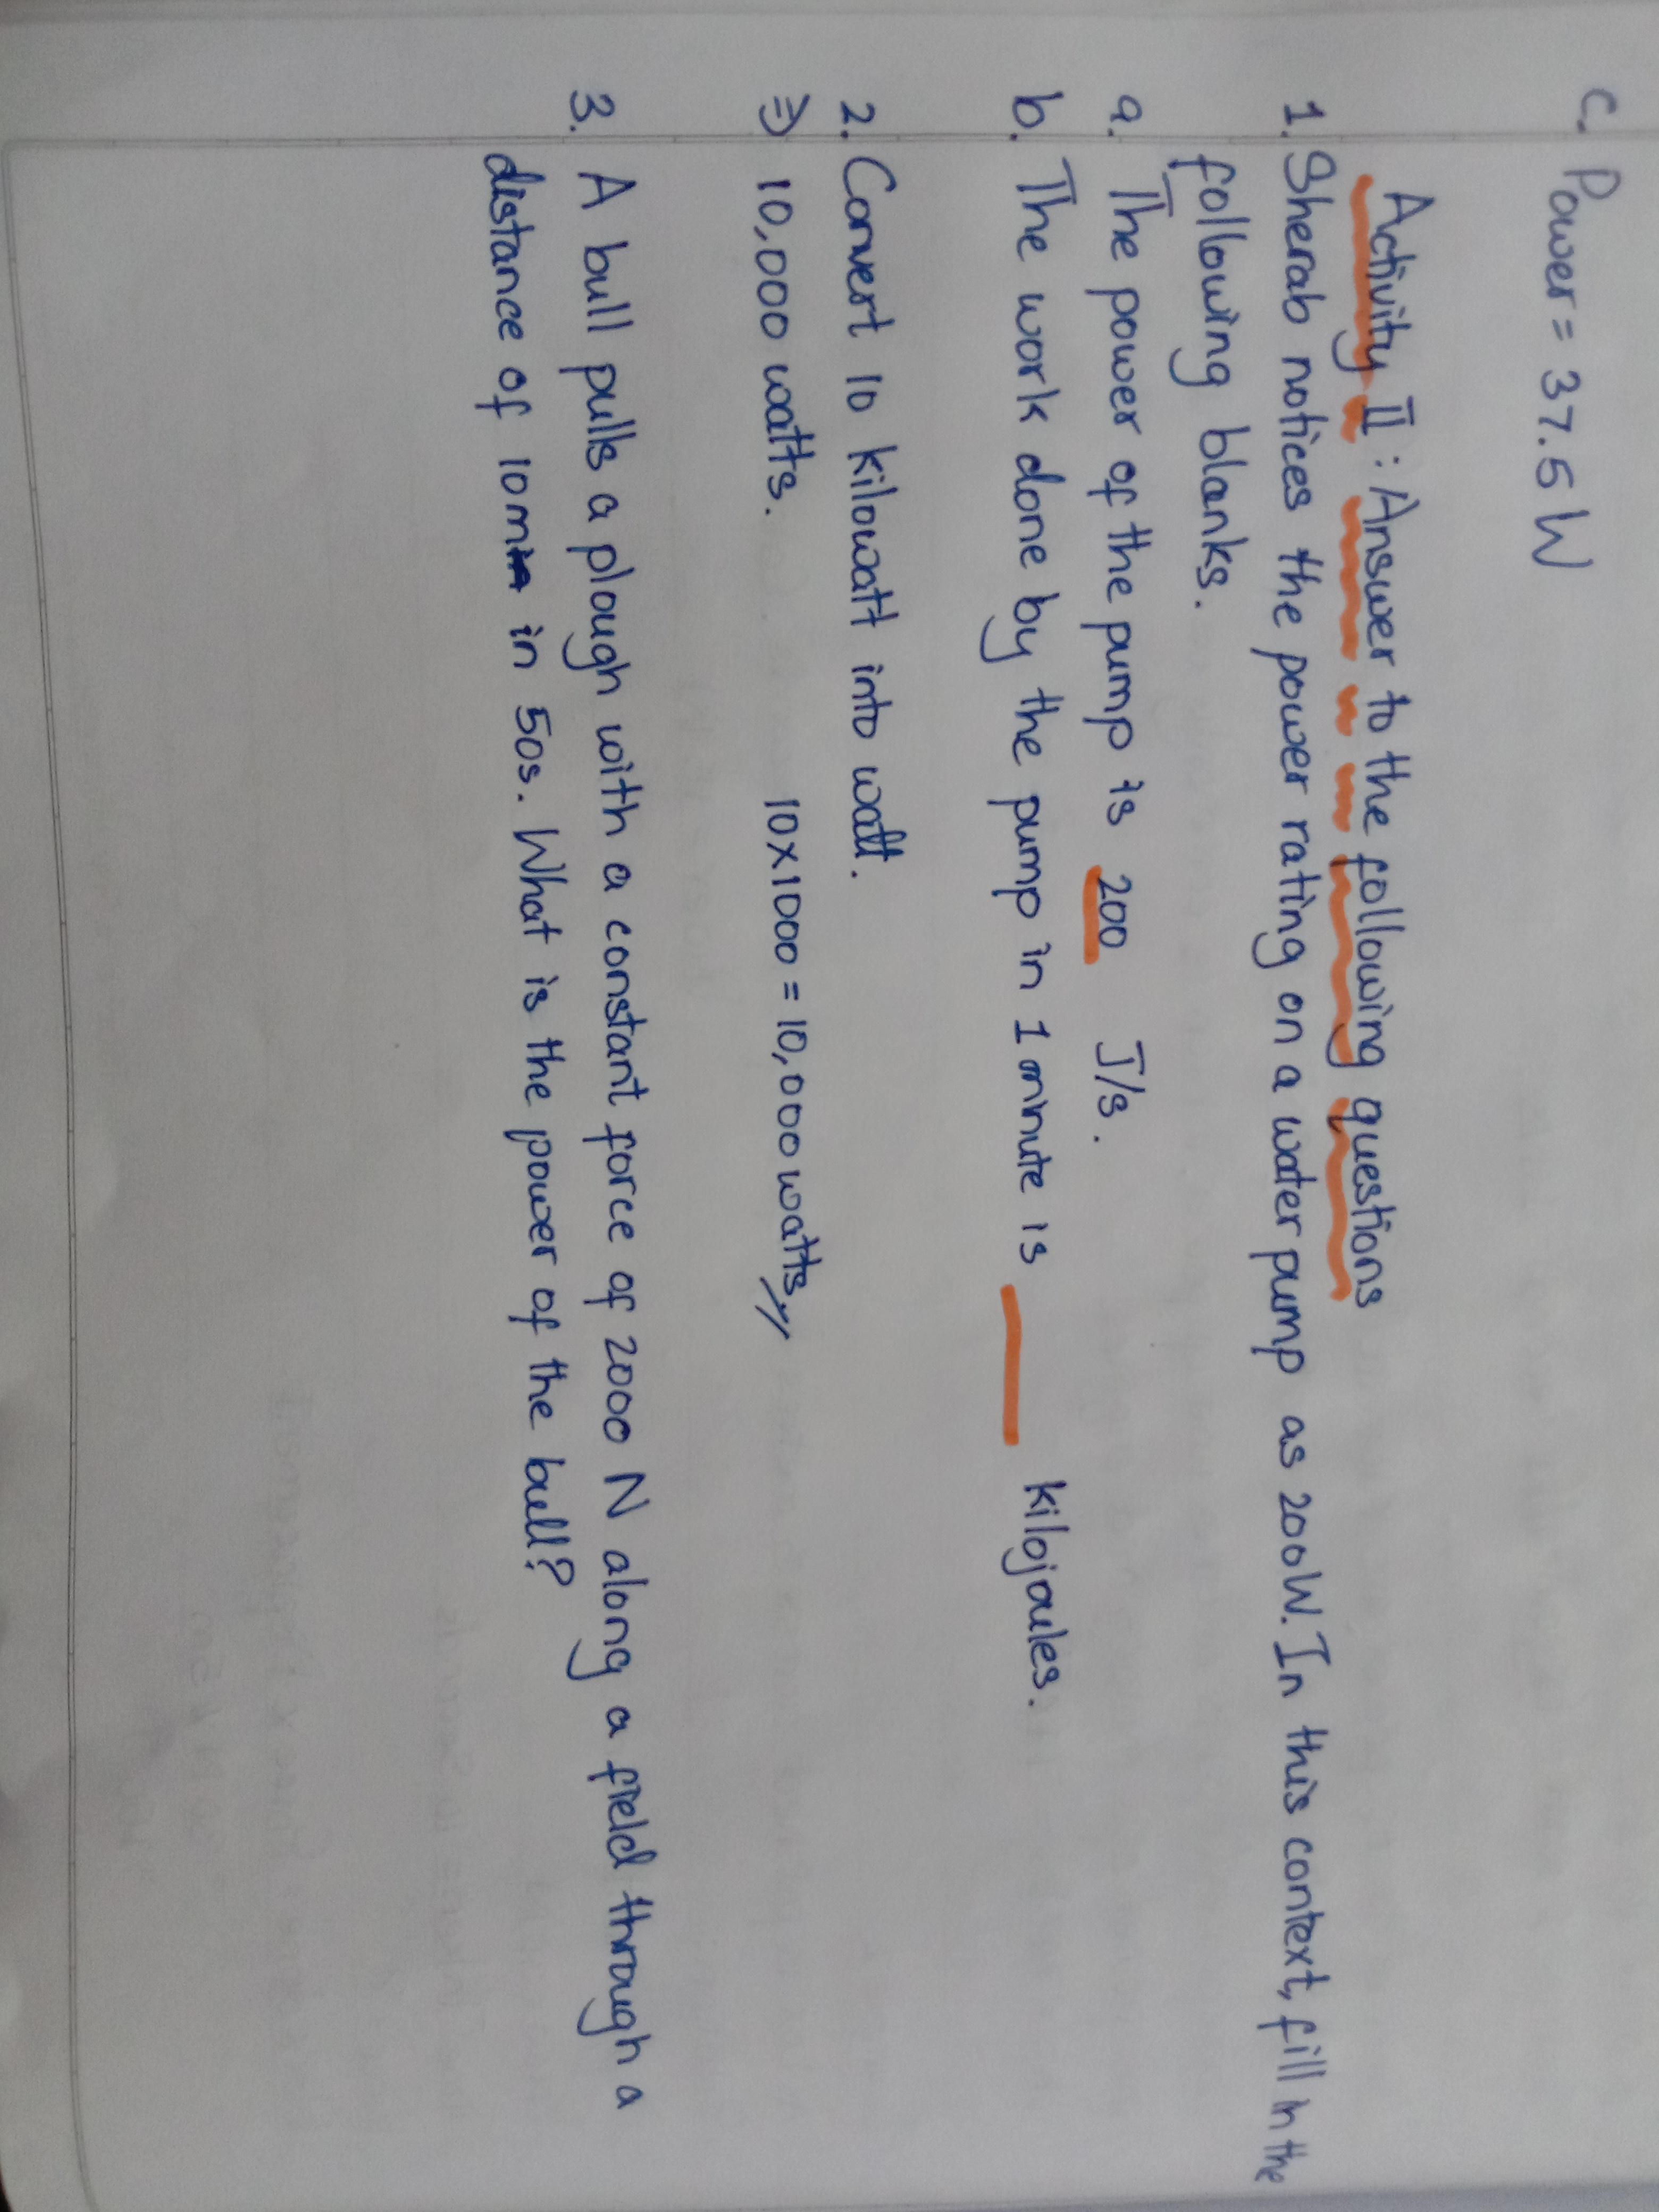 c. Power = 37.5 W
Activity II : Answer to the following questions
1. Sherab notices the power rating on a water pump as 200W. In this context, fill in the
following blanks.
a. The power of the pump is 200 J/s.
b. The work done by the pump in 1 minute is kilojoules.
2. Convert 10 kilowatt into watt.
⇒ 10,000 watts. 10×1000 = 10,000 watts
3. A bull pulls a plough with a constant force of 2000 N along a field through a
distance of 10m in 50s. What is the power of the bull?